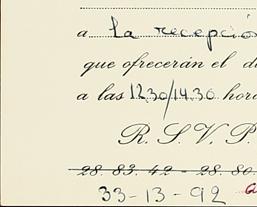 a la recepción
que ofrecerán el d
a las 12.30/14.30 hora
R. S. V. P.
28. 83. 42 - 28. 80.
33-13-92